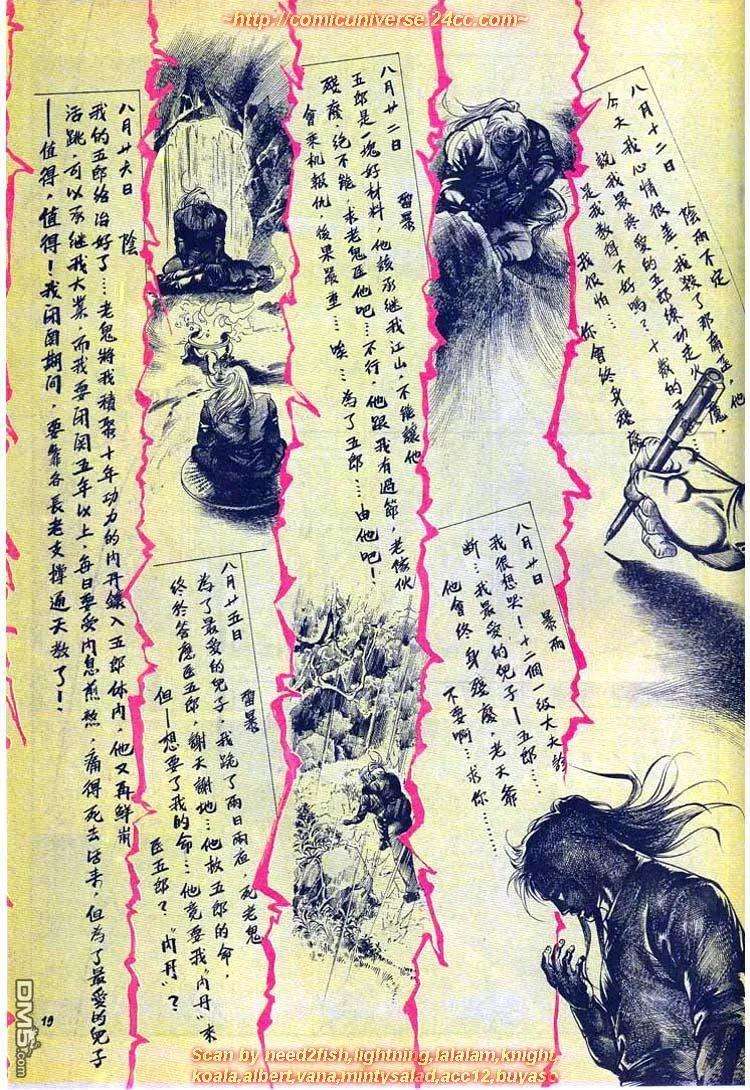 ~http://comicuniverse.24cc.com~
八月十二日 陰雨不定
今天我心情很差，我殺了那痛醫，他
說我最疼愛的五郎練功走火入魔，
是我教得不好嗎？十歲的
我很怕…你會終身殘廢
八月廿日 暴雨
我很想哭！十二個一級大夫診
斷…我最愛的兒子—五郎……
他會終身殘廢，老天爺
不要啊…求你……
八月廿二日 雷暴
五郎是一塊好材料，他該承繼我江山，不能讓他
殘廢，絕不能，求老鬼医他吧…不行，他跟我有過節，老傢伙
會乘机報仇，後果嚴重…唉…為了五郎…由他吧！
八月廿五日 雷暴
為了最愛的兒子，我跪了兩日兩夜，死老鬼
終於答應医五郎，謝天謝地…他救五郎的命，
但—想要了我的命…他竟要我“內丹”來
医五郎？“內丹”？
八月廿六日 陰
我的五郎給治好了…老鬼將我積聚十年功力的內丹鑲入五郎体內，他又再鮮崩
活跳，可以承継我大業，而我要閉関五年以上，每日要受內息煎熬，痛得死去活來，但為了最愛的兒子
—值得，值得！我閉関期間，要靠各長老支撐通天教了！
19
DM5.com
Scan by need2fish,lightning,lalalam,knight,
koala,albert,vana,mintysalad,acc12,buyaso